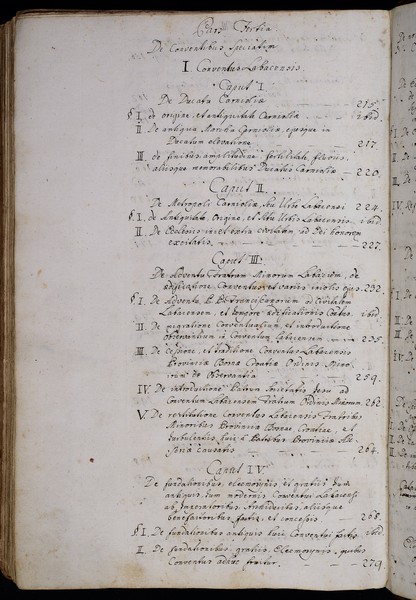 Pars Tertia
De Conventibus Speciatim
I. Conventus Labacensis.
Caput I.
De Ducatu Carnioliæ - 215.
§ I. de origine, et antiquitate Carnioliæ - ibid.
II. De antiqua Marchia Carnioliæ, ejusque in
Ducatum elevatione 217.
III. de finibus, amplitudine fertilitate
aliisque memorabilibus Ducatus Carnioliæ - 220.
Caput II.
De Metropoli Carnioliæ, seu Urbe Labacensi 224.
§ I. de Antiquitate, Origine, et Situ Urbis Labacensis. ibid.
II. De Ecclesiis in et extra Civitatem ad Dei honorem
excitatis. - 227.
Caput III.
De adventu Fratrum Minorum Labacum, de
ædificatione Conventus, et variis ejus. 232.
§ I. de Adventu P.P. Franciscanorum ad Civitatem
Labacensem, et tempore ædificationis ibid.
II. de migratione Conventualium, et introductione
Observantium in Conventum labacensem - 235.
III. de cessione, et traditione Conventus Labacensis
Provinciæ Bosnæ Croatiæ Ordinis Mino-
rum de Observantia - 259.
IV. de introductione Patrum Societatis Jesu ad
Conventum Labacensem Fratrum Ordinis Minorum. 262.
V. De restitutione Conventus Labacensis Fratribus
Minoribus Provinciæ Bosnæ Croatiæ, et
turbulentiis huic a Patribus Provinciæ Au-
striæ causatis - 264.
Caput IV.
De fundationibus, eleemosynis, et gratiis dum
antiquis, dum modernis Conventui Labacensi
ab Imperatoribus, Archiducibus, aliisque
benefactoribus factis, et concessis - 268.
§ I. De fundationibus antiquis huic Conventui factis. ibid.
II. De fundationibus, gratiis, Eleemosynis, quibus
Conventus adhuc fruitur. - 279.